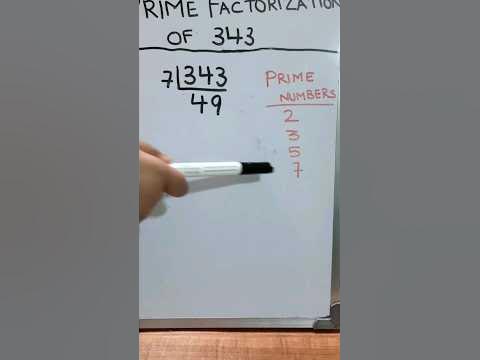 PRIME FACTORIZATION
OF 343
7 343
49
PRIME
NUMBERS
2
3
5
7